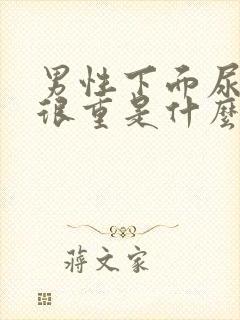 男性下而尿
很重是什麼
蔣文家